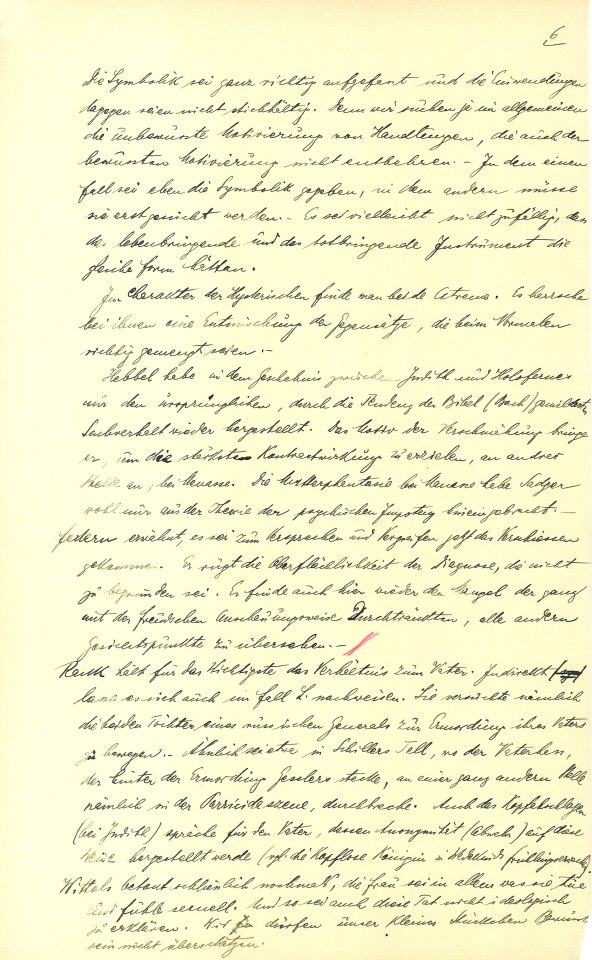 6
Die Symbolik sei ganz richtig aufgefasst und die Einwendungen
dagegen seien nicht stichhältig. Denn wir suchen ja im allgemeinen
die unbewusste Motivierung von Handlungen, die auch der
bewussten Motivierung nicht entbehren. – In dem einen
Fall sei eben die Symbolik gegeben, in dem andern müsse
sie erst gesucht werden. – Es sei vielleicht nicht zufällig, dass
das lebenbringende und das totbringende Instrument die
gleiche Form hätten.
Im Charakter der Hysterischen finde man beide Extreme. Es herrsche
bei ihnen eine Entmischung der Gegensätze, die beim Normalen
richtig gemengt seien. –
Hebbel habe in dem Geschehnis zwischen Judith und Holofernes
nur den ursprünglichen, durch die Tendenz der Bibel (Bach) gemilderten
Sachverhalt wieder hergestellt. Das Motiv der Verschmähung bringe
er, um die stärksten Kontrastwirkung zu erzielen, an andrer
Stelle an, bei Manasse. Die Mutterphantasie bei Manasse habe Sadger
wohl nur aus der Theorie der psychischen Impotenz hineingebracht. –
Federn erwähnt, es sei zum Versprechen und Vergreifen jetzt das Verschiessen
gekommen. Er rügt die Oberflächlichkeit der Diagnose, die nicht
zu begründen sei. Er finde auch hier wieder den Mangel der ganz
mit der freudschen Anschauungsweise Durchtränkten, alle andern
Gesichtspunkte zu übersehen. –
Rank hält für das Wichtigste das Verhältnis zum Vater. Indirekt
lasse es sich auch im Fall L. nachweisen. Sie versuchte nämlich
die beiden Töchter eines russischen Generals zur Ermordung ihres Vaters
zu bewegen. – Ähnlich wie etwa in Schillers Tell, wo der Vaterhass,
der hinter der Ermordung Gesslers stecke, an einer ganz andern Stelle
nämlich in der Parricidaszene, durchbreche. Auch das Kopfabschlagen
(bei Judith) spräche für den Vater, dessen Anonymität (Absch.) auf diese
Weise hergestellt werde (vgl. die kopflose Königin in Wedekinds Frühlingserwachen)
Wittels betont schliesslich nochmals, die Frau sei in allem was sie tue
und fühle sexuell. Und so sei auch diese Tat nicht ideologisch
zu erklären. Wir dürfen unser kleines Stückchen Bewusst
sein nicht überschätzen.